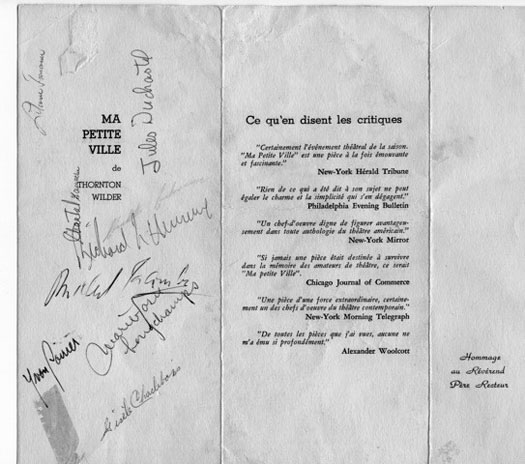 MA
PETITE
VILLE
de
THORNTON
WILDER
Jules Duchastel
Gisèle Charlebois
Longchamps
Ce qu'en disent les critiques
"Certainement l'événement théâtral de la saison.
"Ma Petite Ville" est une pièce à la fois émouvante
et fascinante."
New-York Hérald Tribune
"Rien de ce qui a été dit à son sujet ne peut
égaler le charme et la simplicité qui s'en dégagent."
Philadelphia Evening Bulletin
"Un chef-d'oeuvre digne de figurer avantageu-
sement dans toute anthologie du théâtre américain."
New-York Mirror
"Si jamais une pièce était destinée à survivre
dans la mémoire des amateurs de théâtre, ce serait
"Ma Petite Ville".
Chicago Journal of Commerce
"Une pièce d'une force extraordinaire, certaine-
ment un des chefs d'oeuvre du théâtre contemporain."
New-York Morning Telegraph
"De toutes les pièces que j'ai vues, aucune ne
m'a ému si profondément."
Alexander Woolcott
Hommage
au Révérend
Père Recteur